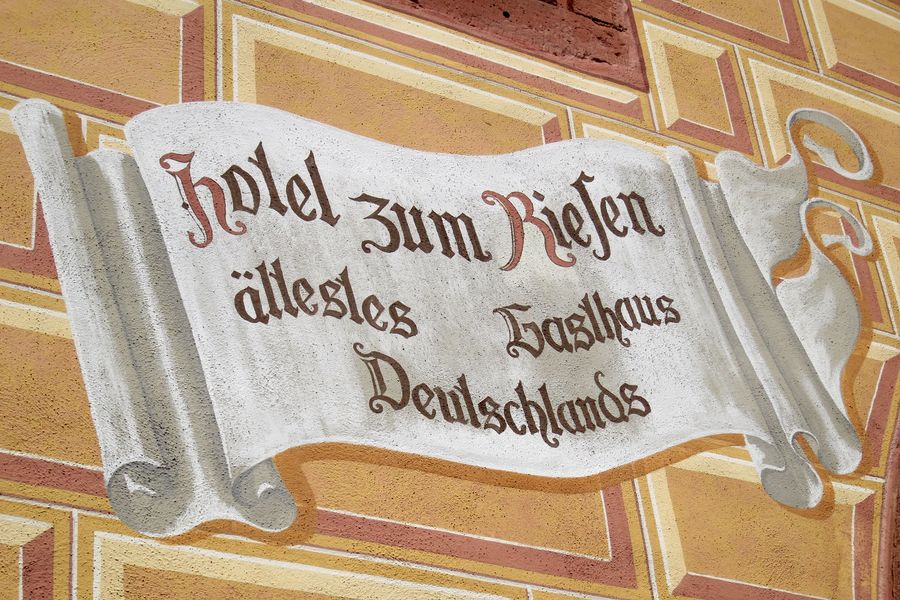 Hotel zum Rieſen
ältestes Gasthaus
Deutschlands